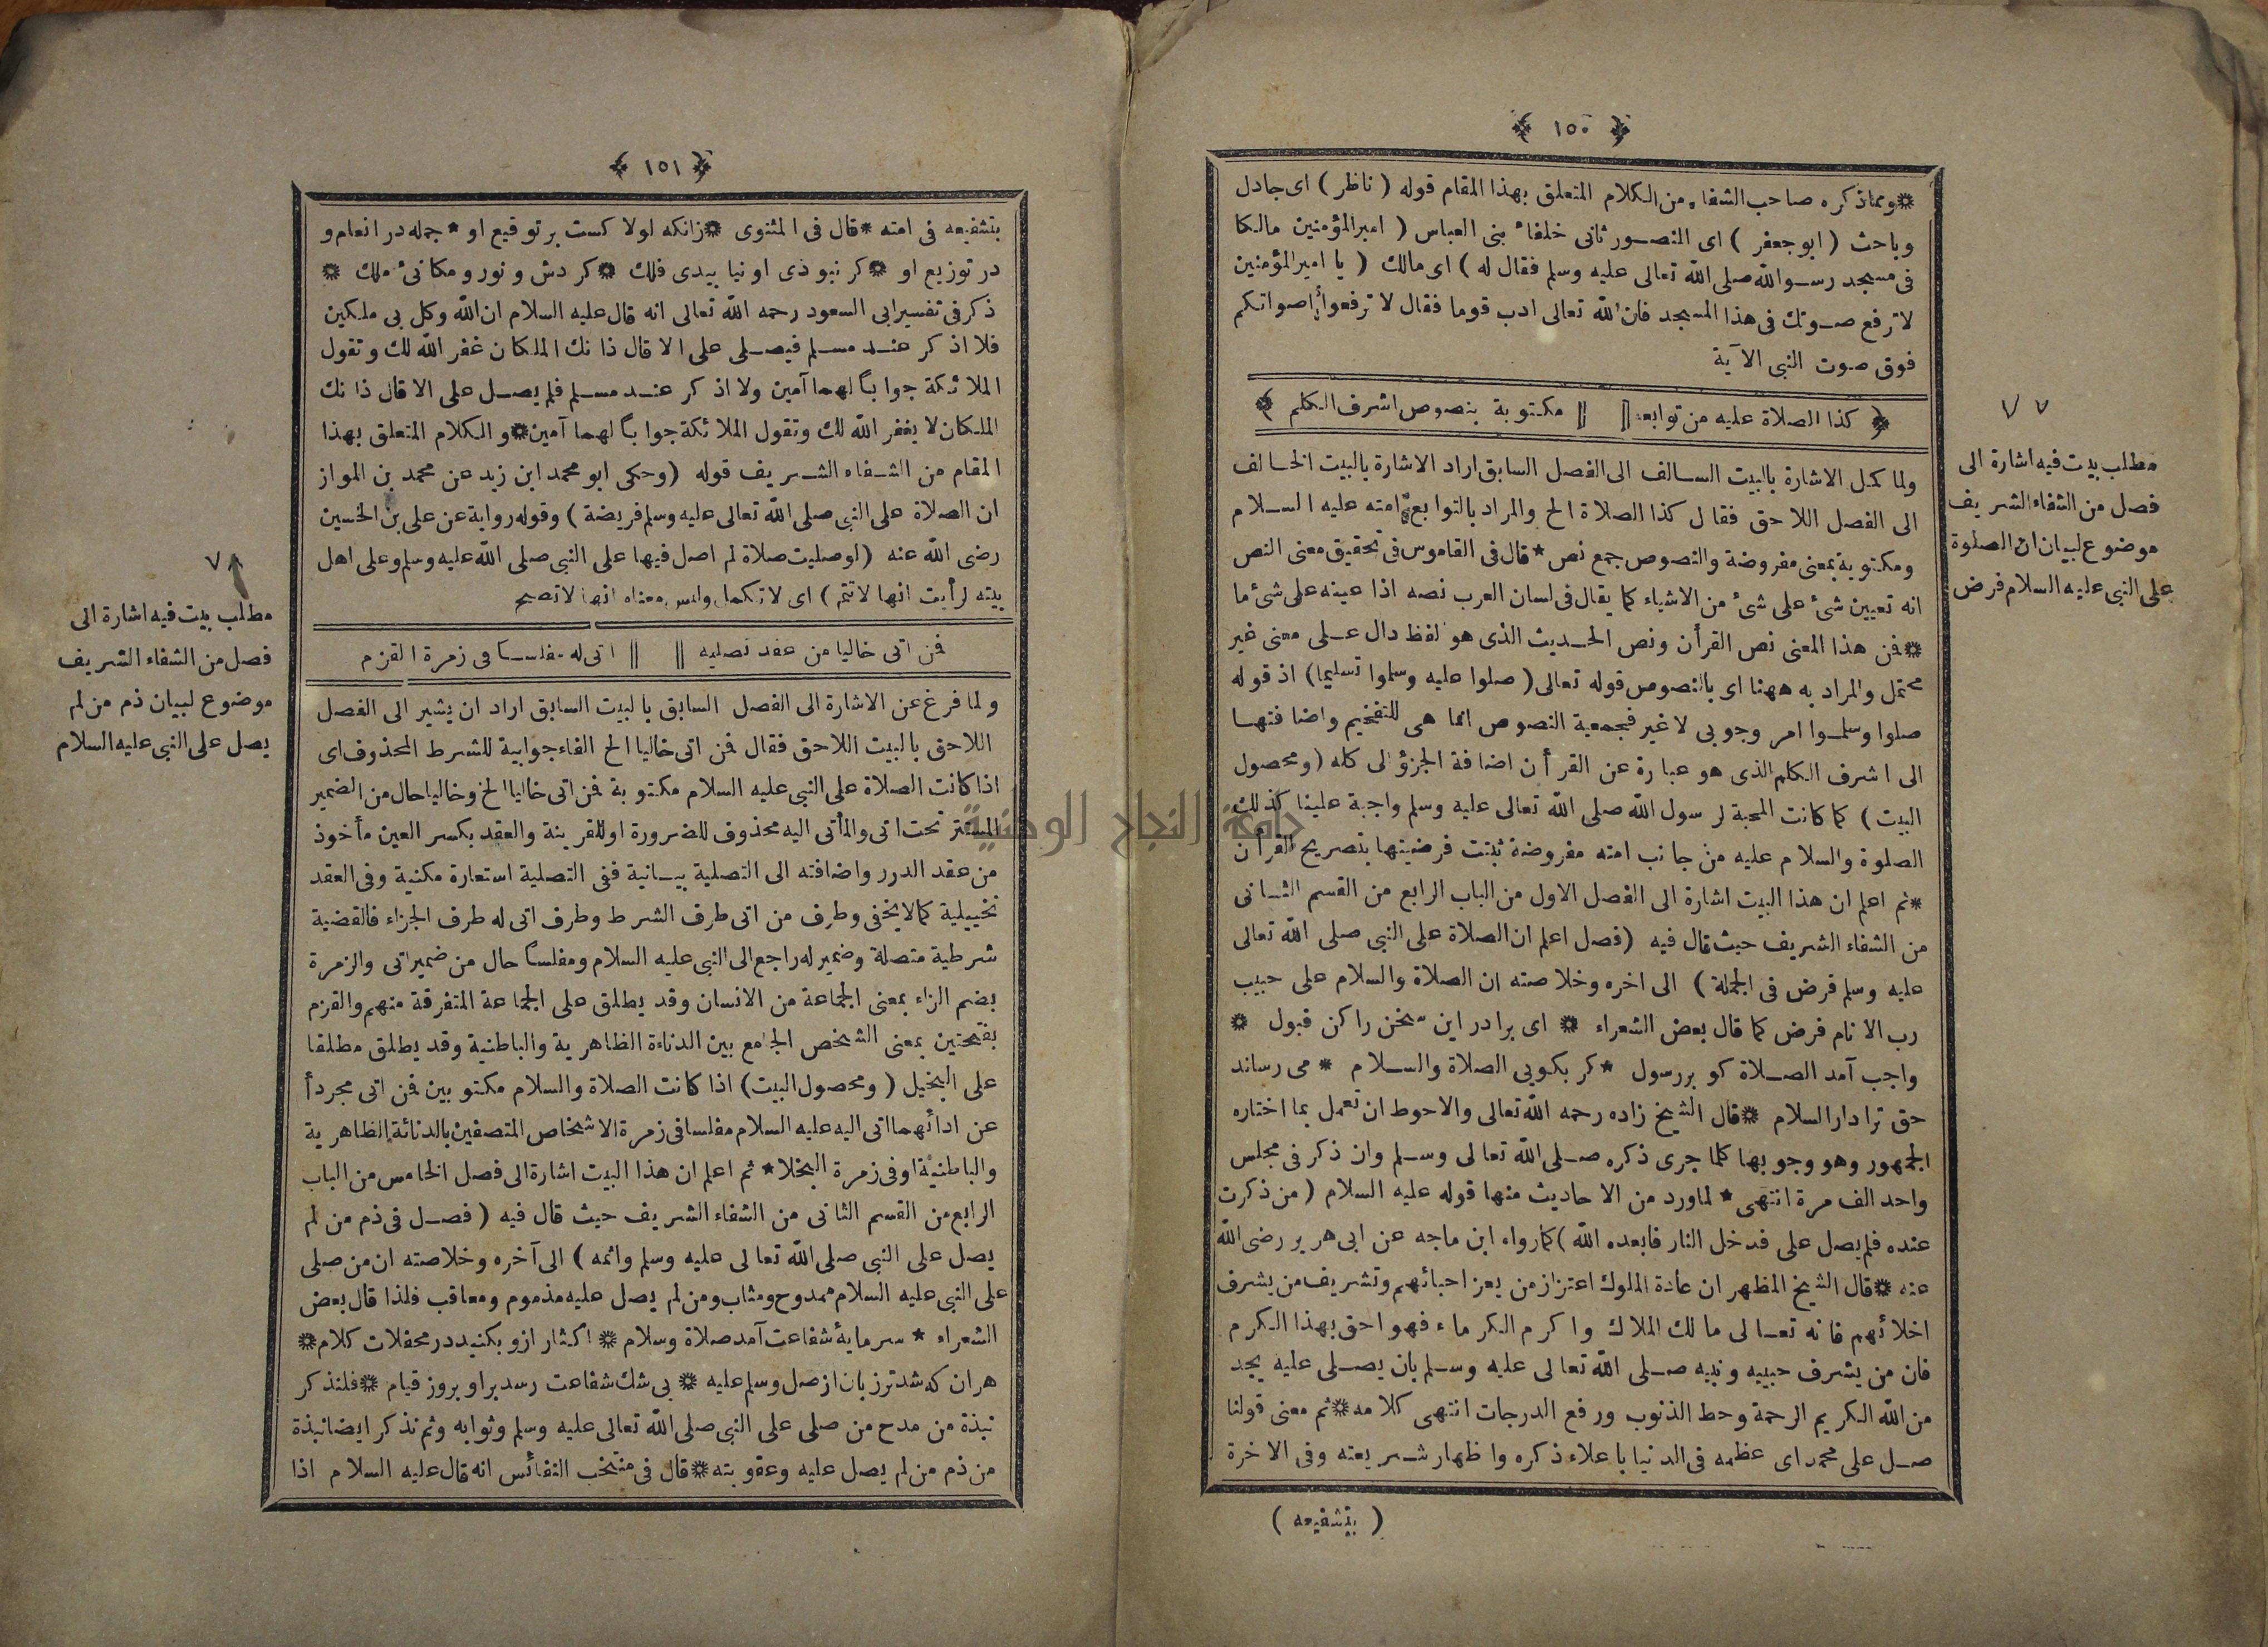 ﴿ ١٥٠ ﴾
❊ومما ذكره صاحب الشفاء من الكلام المتعلق بهذا المقام قوله ( ناظر ) اى جادل
وباحث ( ابو جعفر ) اى المنصور ثانى خلفاء بنى العباس ( امير المؤمنين مالكا
فى مسجد رسول الله صلى الله تعالى عليه وسلم فقال له ) اى مالك ( يا امير المؤمنين
لا ترفع صوتك فى هذا المسجد فان الله تعالى ادب قوما فقال لا ترفعوا اصواتكم
فوق صوت النبى الآية
﴿ كذا الصلاة عليه من توابعه || || مكتوبة بنصوص اشرف الكلم ﴾
ولما كمل الاشارة بالبيت السالف الى الفصل السابق اراد الاشارة بالبيت الخالف
الى الفصل اللاحق فقال كذا الصلاة الخ والمراد بالتوابع امته عليه السلام
ومكتوبة بمعنى مفروضة والنصوص جمع نص * قال فى القاموس فى تحقيق معنى النص
انه تعيين شئ على شئ من الاشياء كما يقال فى لسان العرب نصه اذا عينه على شئ ما
❊فمن هذا المعنى نص القرأن ونص الحديث الذى هو لفظ دال على معنى غير
محتمل والمراد به ههنا اى بالنصوص قوله تعالى ( صلوا عليه وسلموا تسليما ) اذ قوله
صلوا وسلموا امر وجوبى لا غير فجمعية النصوص انما هى للتفخيم واضافتها
الى اشرف الكلم الذى هو عبارة عن القرأن اضافة الجزؤ الى كله ( ومحصول
البيت ) كما كانت المحبة لرسول الله صلى الله تعالى عليه وسلم واجبة علينا كذلك
الصلوة والسلام عليه من جانب امته مفروضة ثبتت فرضيتها بتصريح القرأن
*ثم اعلم ان هذا البيت اشارة الى الفصل الاول من الباب الرابع من القسم الثانى
من الشفاء الشريف حيث قال فيه ( فصل اعلم ان الصلاة على النبى صلى الله تعالى
عليه وسلم فرض فى الجملة ) الى اخره وخلاصته ان الصلاة والسلام على حبيب
رب الانام فرض كما قال بعض الشعراء ❊ اى برادر اين سخن را كن قبول ❊
واجب آمد الصلاة كو بر رسول * كر بكويى الصلاة والسلام * مى رساند
حق ترا دار السلام ❊قال الشيخ زاده رحمه الله تعالى والاحوط ان تعمل بما اختاره
الجمهور وهو وجوبها كلما جرى ذكره صلى الله تعالى وسلم وان ذكر فى مجلس
واحد الف مرة انتهى * لما ورد من الاحاديث منها قوله عليه السلام ( من ذكرت
عنده فلم يصل على فدخل النار فابعده الله ) كما رواه ابن ماجه عن ابى هرير رضى الله
عنه ❊قال الشيخ المظهر ان عادة الملوك اعتزاز من يعز احبائهم وتشريف من يشرف
اخلائهم فانه تعالى مالك الملاك واكرم الكرماء فهو احق بهذا الكرم
فان من يشرف حبيبه ونبيه صلى الله تعالى عليه وسلم بان يصلى عليه يجد
من الله الكريم الرحمة وحط الذنوب ورفع الدرجات انتهى كلامه ❊ثم معنى قولنا
صل على محمد اى عظمه فى الدنيا باعلاء ذكره واظهار شريعته وفى الاخرة
( بتشفيعه )
٧ ٧
مطلب بيت فيه اشارة الى
فصل من الشفاء الشريف
موضوع لبيان ان الصلوة
على النبى عليه السلام فرض
﴿ ١٥١ ﴾
بتشفيعه فى امته *قال فى المثنوى ❊زانكه لولا كست بر توقيع او * جمله در انعام و
در توزيع او ❊كر نبوذى او نيا بيدى فلك ❊كردش و نور و مكانئ ملك ❊
ذكر فى تفسير ابى السعود رحمه الله تعالى انه قال عليه السلام ان الله وكل بى ملكين
فلا اذكر عند مسلم فيصلى على الا قال ذانك الملكان غفر الله لك وتقول
الملائكة جوابا لهما آمين ولا اذكر عند مسلم فلم يصل على الا قال ذانك
الملكان لا يغفر الله لك وتقول الملائكة جوابا لهما آمين❊والكلام المتعلق بهذا
المقام من الشفاء الشريف قوله ( وحكى ابو محمد ابن زيد عن محمد بن المواز
ان الصلاة على النبى صلى الله تعالى عليه وسلم فريضة ) وقوله رواية عن على بن الحسين
رضى الله عنه ( لو صليت صلاة لم اصل فيها على النبى صلى الله عليه وسلم وعلى اهل
بيته لرأيت انها لا تتم ) اى لا تكمل وليس معناه انها لا تصح
فمن اتى خاليا من عقد تصليه || || اتى له مفلسا فى زمرة القزم
ولما فرغ عن الاشارة الى الفصل السابق بالبيت السابق اراد ان يشير الى الفصل
اللاحق بالبيت اللاحق فقال فمن اتى خاليا الخ الفاء جوابية للشرط المحذوف اى
اذا كانت الصلاة على النبى عليه السلام مكتوبة فمن اتى خاليا الخ وخاليا حال من الضمير
المستتر تحت اتى والمأتى اليه محذوف للضرورة او للقرينة والعقد بكسر العين مأخوذ
من عقد الدرر واضافته الى التصلية بيانية ففى التصلية استعارة مكنية وفى العقد
تخييلية كما لا يخفى وطرف من اتى طرف الشرط وطرف اتى له طرف الجزاء فالقضية
شرطية متصلة وضمير له راجع الى النبى عليه السلام ومفلسا حال من ضمير اتى والزمرة
بضم الزاء بمعنى الجماعة من الانسان وقد يطلق على الجماعة المتفرقة منهم والقزم
بفتحتين بمعنى الشخص الجامع بين الدناءة الظاهرية والباطنية وقد يطلق مطلقا
على البخيل ( ومحصول البيت ) اذا كانت الصلاة والسلام مكتوبين فمن اتى مجردأ
عن ادائهما اتى اليه عليه السلام مفلسا فى زمرة الاشخاص المتصفين بالدنائة الظاهرية
والباطنية او فى زمرة البخلا* ثم اعلم ان هذا البيت اشارة الى فصل الخامس من الباب
الرابع من القسم الثانى من الشفاء الشريف حيث قال فيه ( فصل فى ذم من لم
يصل على النبى صلى الله تعالى عليه وسلم واثمه ) الى آخره وخلاصته ان من صلى
على النبى عليه السلام ممدوح ومثاب ومن لم يصل عليه مذموم ومعاقب فلذا قال بعض
الشعراء * سرمايۀ شفاعت آمد صلاة وسلام ❊ اكثار ازو بكنيد در محفلات كلام❊
هران كه شد تر زبان از صل وسلم عليه ❊ بى شك شفاعت رسد بر او بروز قيام ❊فلنذكر
نبذة من مدح من صلى على النبى صلى الله تعالى عليه وسلم وثوابه وثم نذكر ايضا نبذة
من ذم من لم يصل عليه وعقوبته ❊قال فى منتخب النفائس انه قال عليه السلام اذا
٧
مطلب بيت فيه اشارة الى
فصل من الشفاء الشريف
موضوع لبيان ذم من لم
يصل على النبى عليه السلام
جامعة النجاح الوطنية